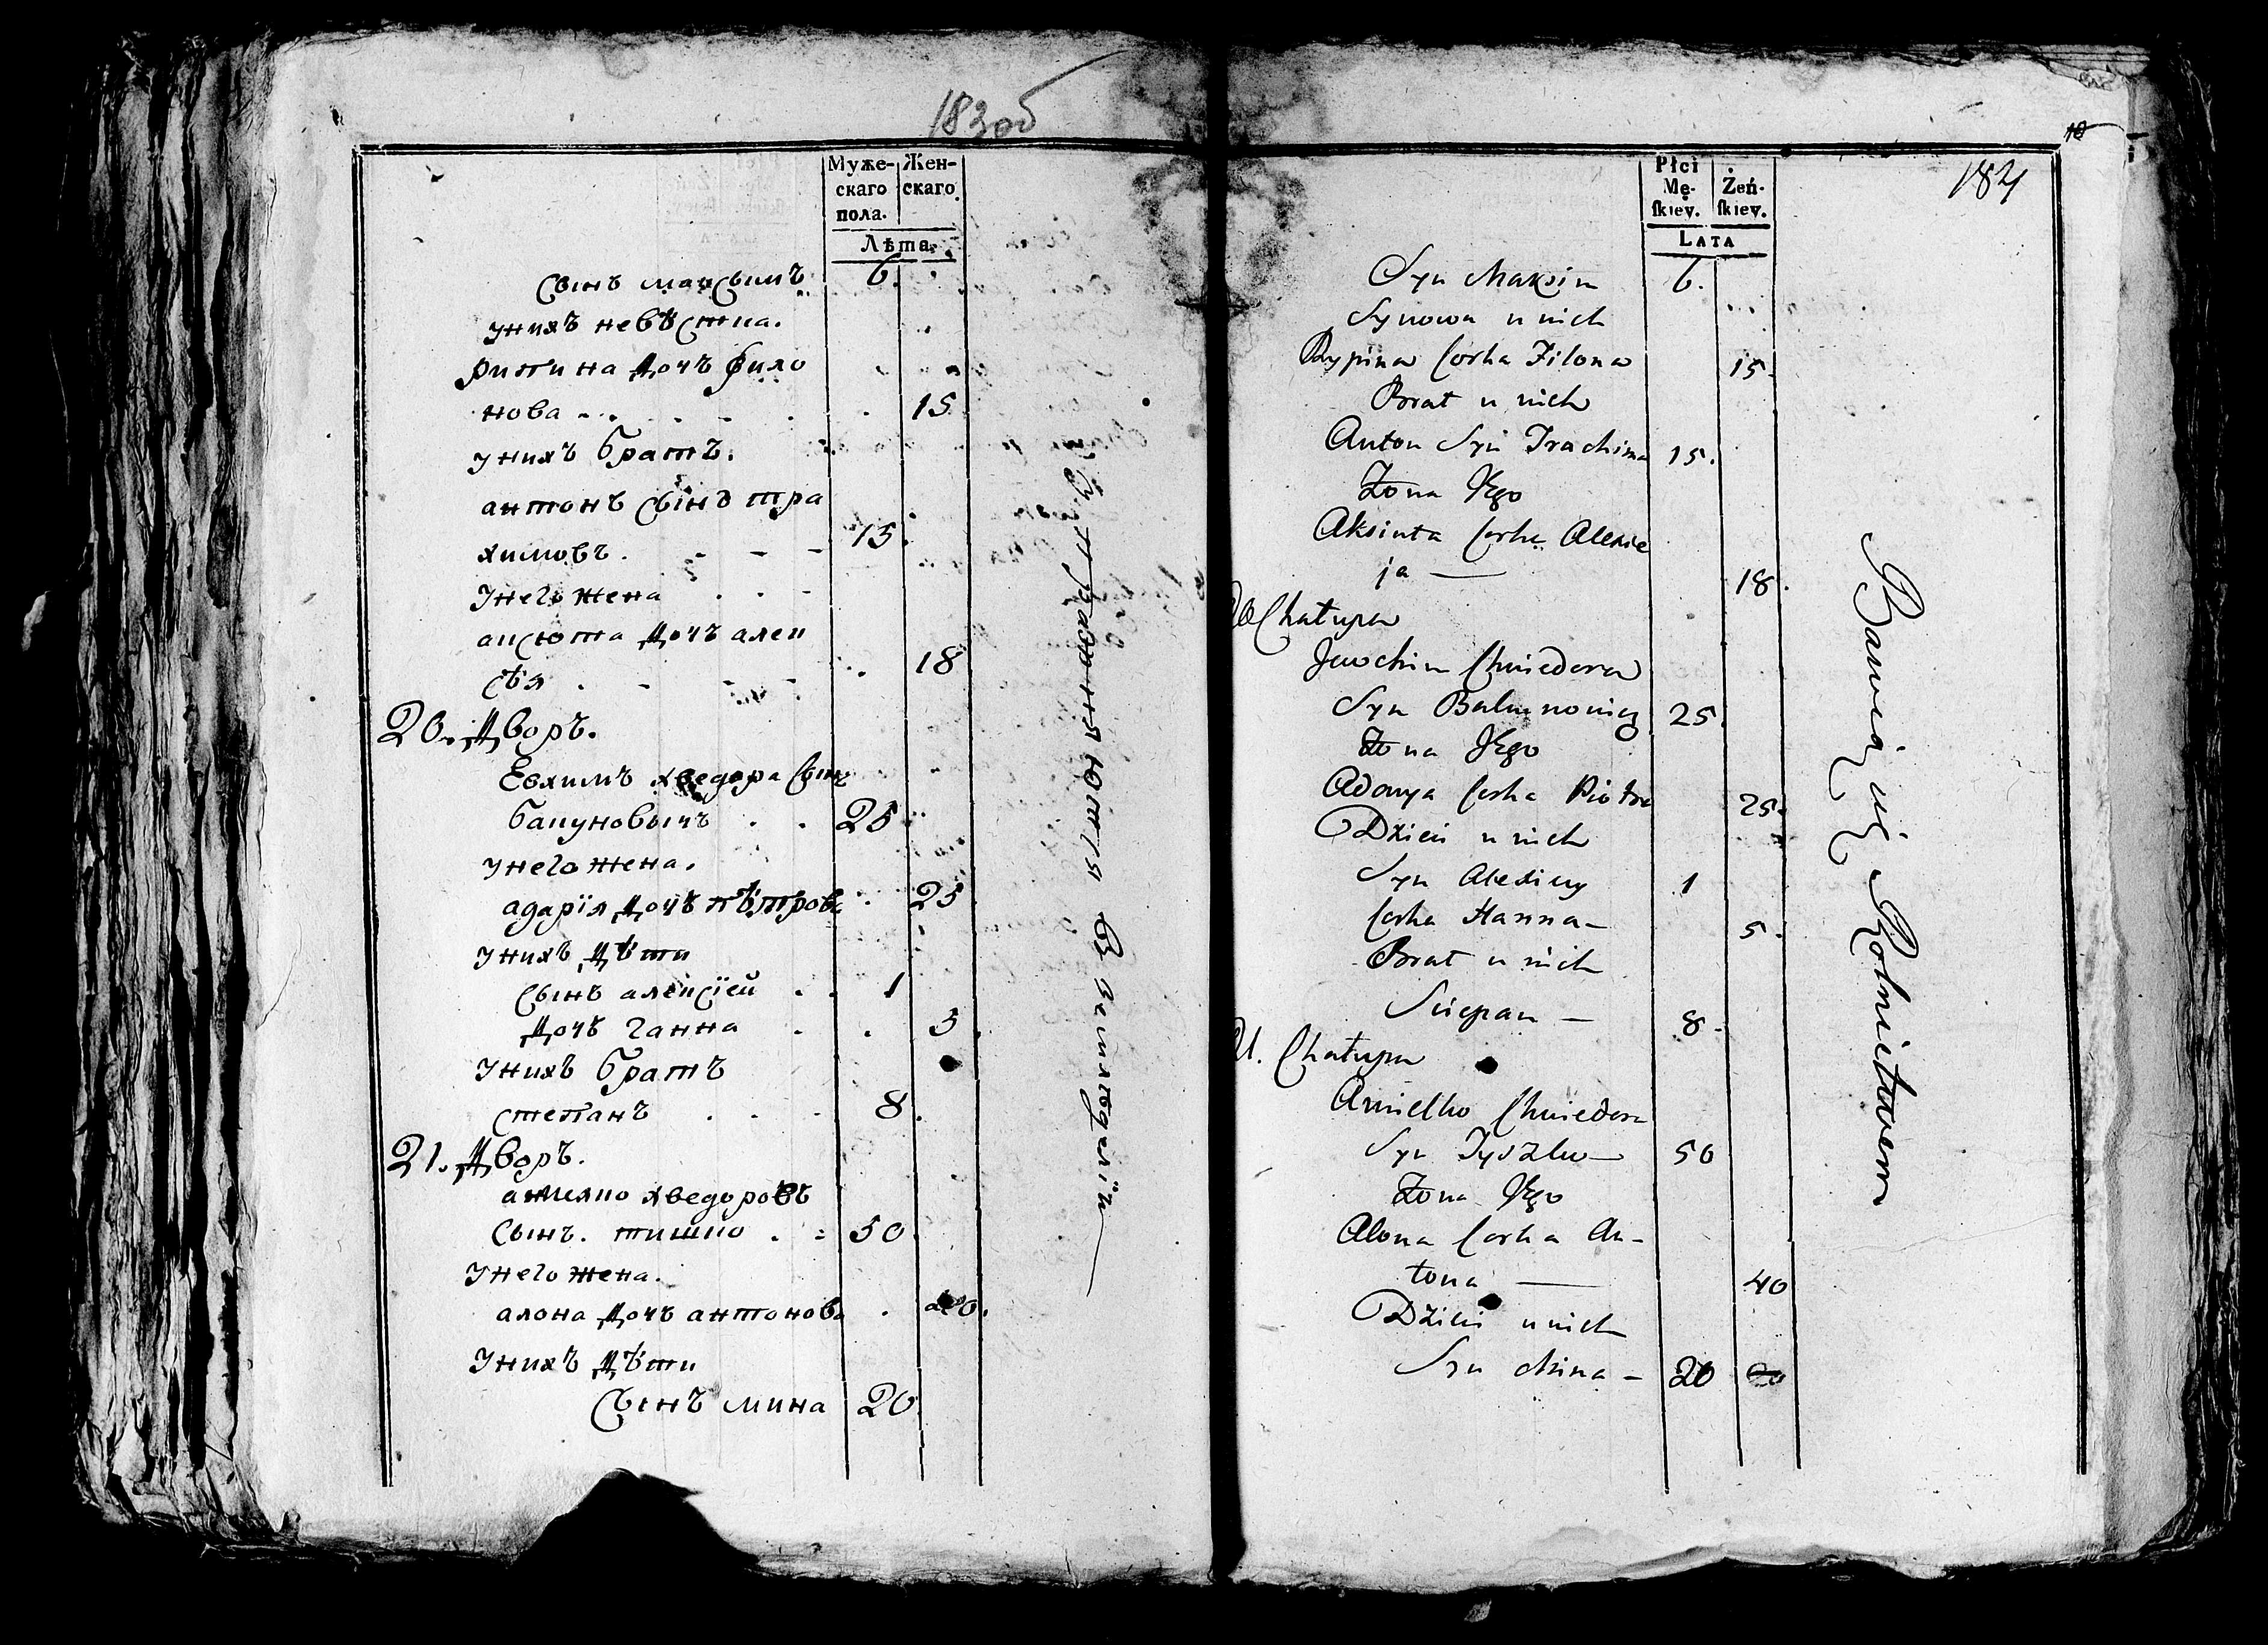 183об
Муже-
скаго
пола.
Жен-
скаго
Лѣта.
Сынъ максымъ 6.
унихъ невѣстка.
рипина дочъ фило
нова - . . - - . . 15
унихъ братъ.
антонъ сынъ тра
химовъ. - - - 15.
унего жена . . -
аксюта дочъ алек
сѣя . - - - . 18
20. Дворъ.
Евхимъ хведора сынъ
бакуновычъ . . 25
унего жена.
адарія дочъ пѣтрова . 25
унихъ дѣти
сынъ алексіей . . 1
дочъ ганна . . 5
унихъ братъ
степанъ . . . 8.
21. Дворъ.
амелко хведоровъ
сынъ. тишко . : 50
унего жена.
алона дочъ антонова . 40.
унихъ дѣти
сынъ мина 20
упражняются в земледеліи
184
Płci
Mę-
ſkiey.
Żeń-
ſkiey.
LATA
Syn Maxim 6.
Synowa u nich
Rypina Corka Filona 15.
Brat u nich
Anton Syn Trachima 15.
Żona Jego
Aksiuta Corka Alexie
ja — 18.
20 Chałupa
Jewchim Chwiedora
Syn 25.
Żona Jego
Adarya Corka Piotra 25.
Dzieci u nich
Syn Alexiey 1
Corka Hanna — 5.
Brat u nich
Sciepan — 8.
21. Chałupa
Amielko Chwiedora
Syn Tyszko — 50
Żona Jego
Alona Corka An-
tona — 40
Dzieci u nich
Syn Mina — 20
Bawią się Rolnictwem